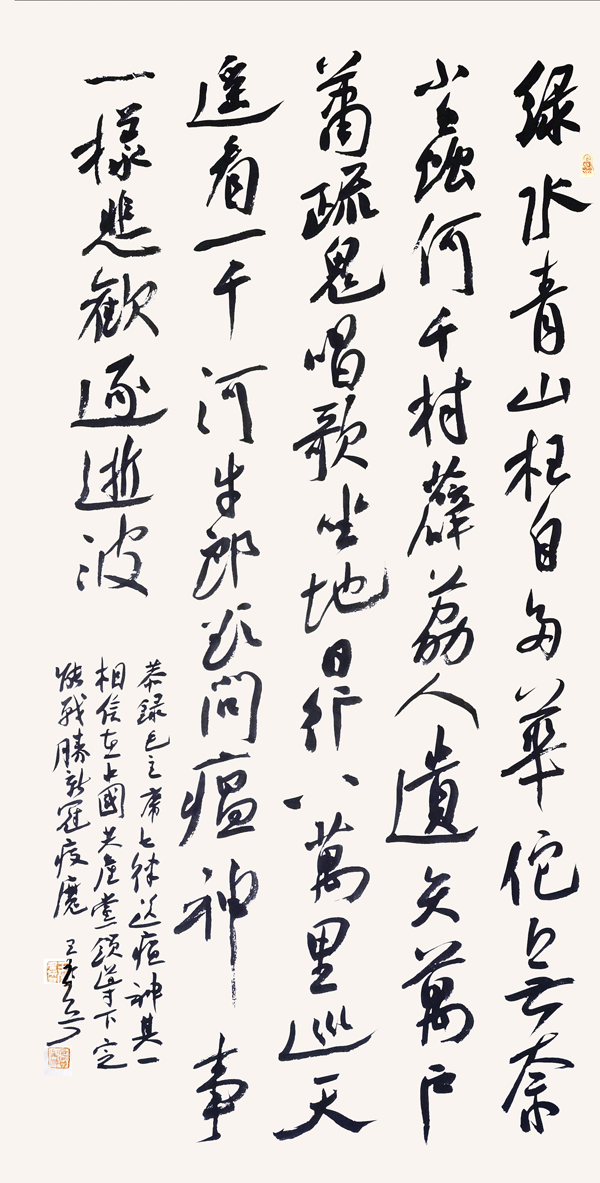 綠水青山枉自多華佗無奈
小蟲何千村薜荔人遺矢萬戶
蕭疏鬼唱歌坐地日行八萬里巡天
遙看一千河牛郎欲問瘟神事
一樣悲歡逐逝波
恭録毛主席七律送瘟神其一
相信在中國共產黨領導下定
能戰勝新冠疫魔